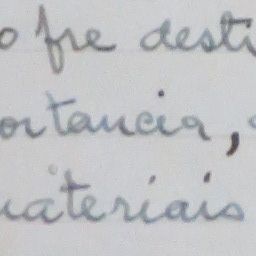 o fre desti
ortancia,
materiais